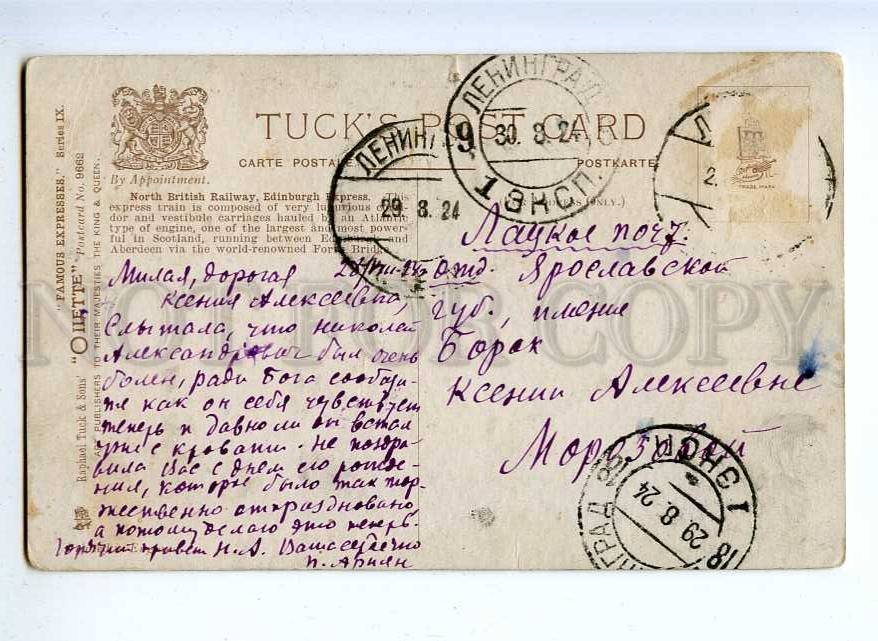 TUCK'S POST CARD
CARTE POSTALE
POSTKARTE
By Appointment.
"FAMOUS EXPRESSES." Series IX.
"OILETTE" Postcard No. 9662
Raphael Tuck & Sons'
ART PUBLISHERS TO THEIR MAJESTIES THE KING & QUEEN.
North British Railway, Edinburgh Express. This
express train is composed of very luxurious
dor and vestibule carriages hauled by an Atlantic
type of engine, one of the largest and most power-
ful in Scotland, running between and
Aberdeen via the world-renowned Forth Bridge.
Милая, дорогая
Ксения Алексеевна,
Слыхала, что Николай
Александрович был очень
болен, ради Бога сообщи-
те как он себя чувствует
теперь и давно ли он встал
уже с кровати. Не поздра-
вила Вас с днем его рожде-
ния, которые было так тор-
жественно отпраздновано,
а потому делаю это теперь.
Горячий привет Н.А. Ваша сердечно
П. Ариян
Лацкое почт.
отд. Ярославской
губ., имение
Борок
Ксении Алексеевне
Морозовой
ЛЕНИНГРАД
9
30. 8. 24
1 ЭКСП.
ЛЕНИНГ
29 8. 24
2.
TRADE MARK
18
29 8. 24
НГРАД 18
1 ЭКСП
NOT FOR COPY